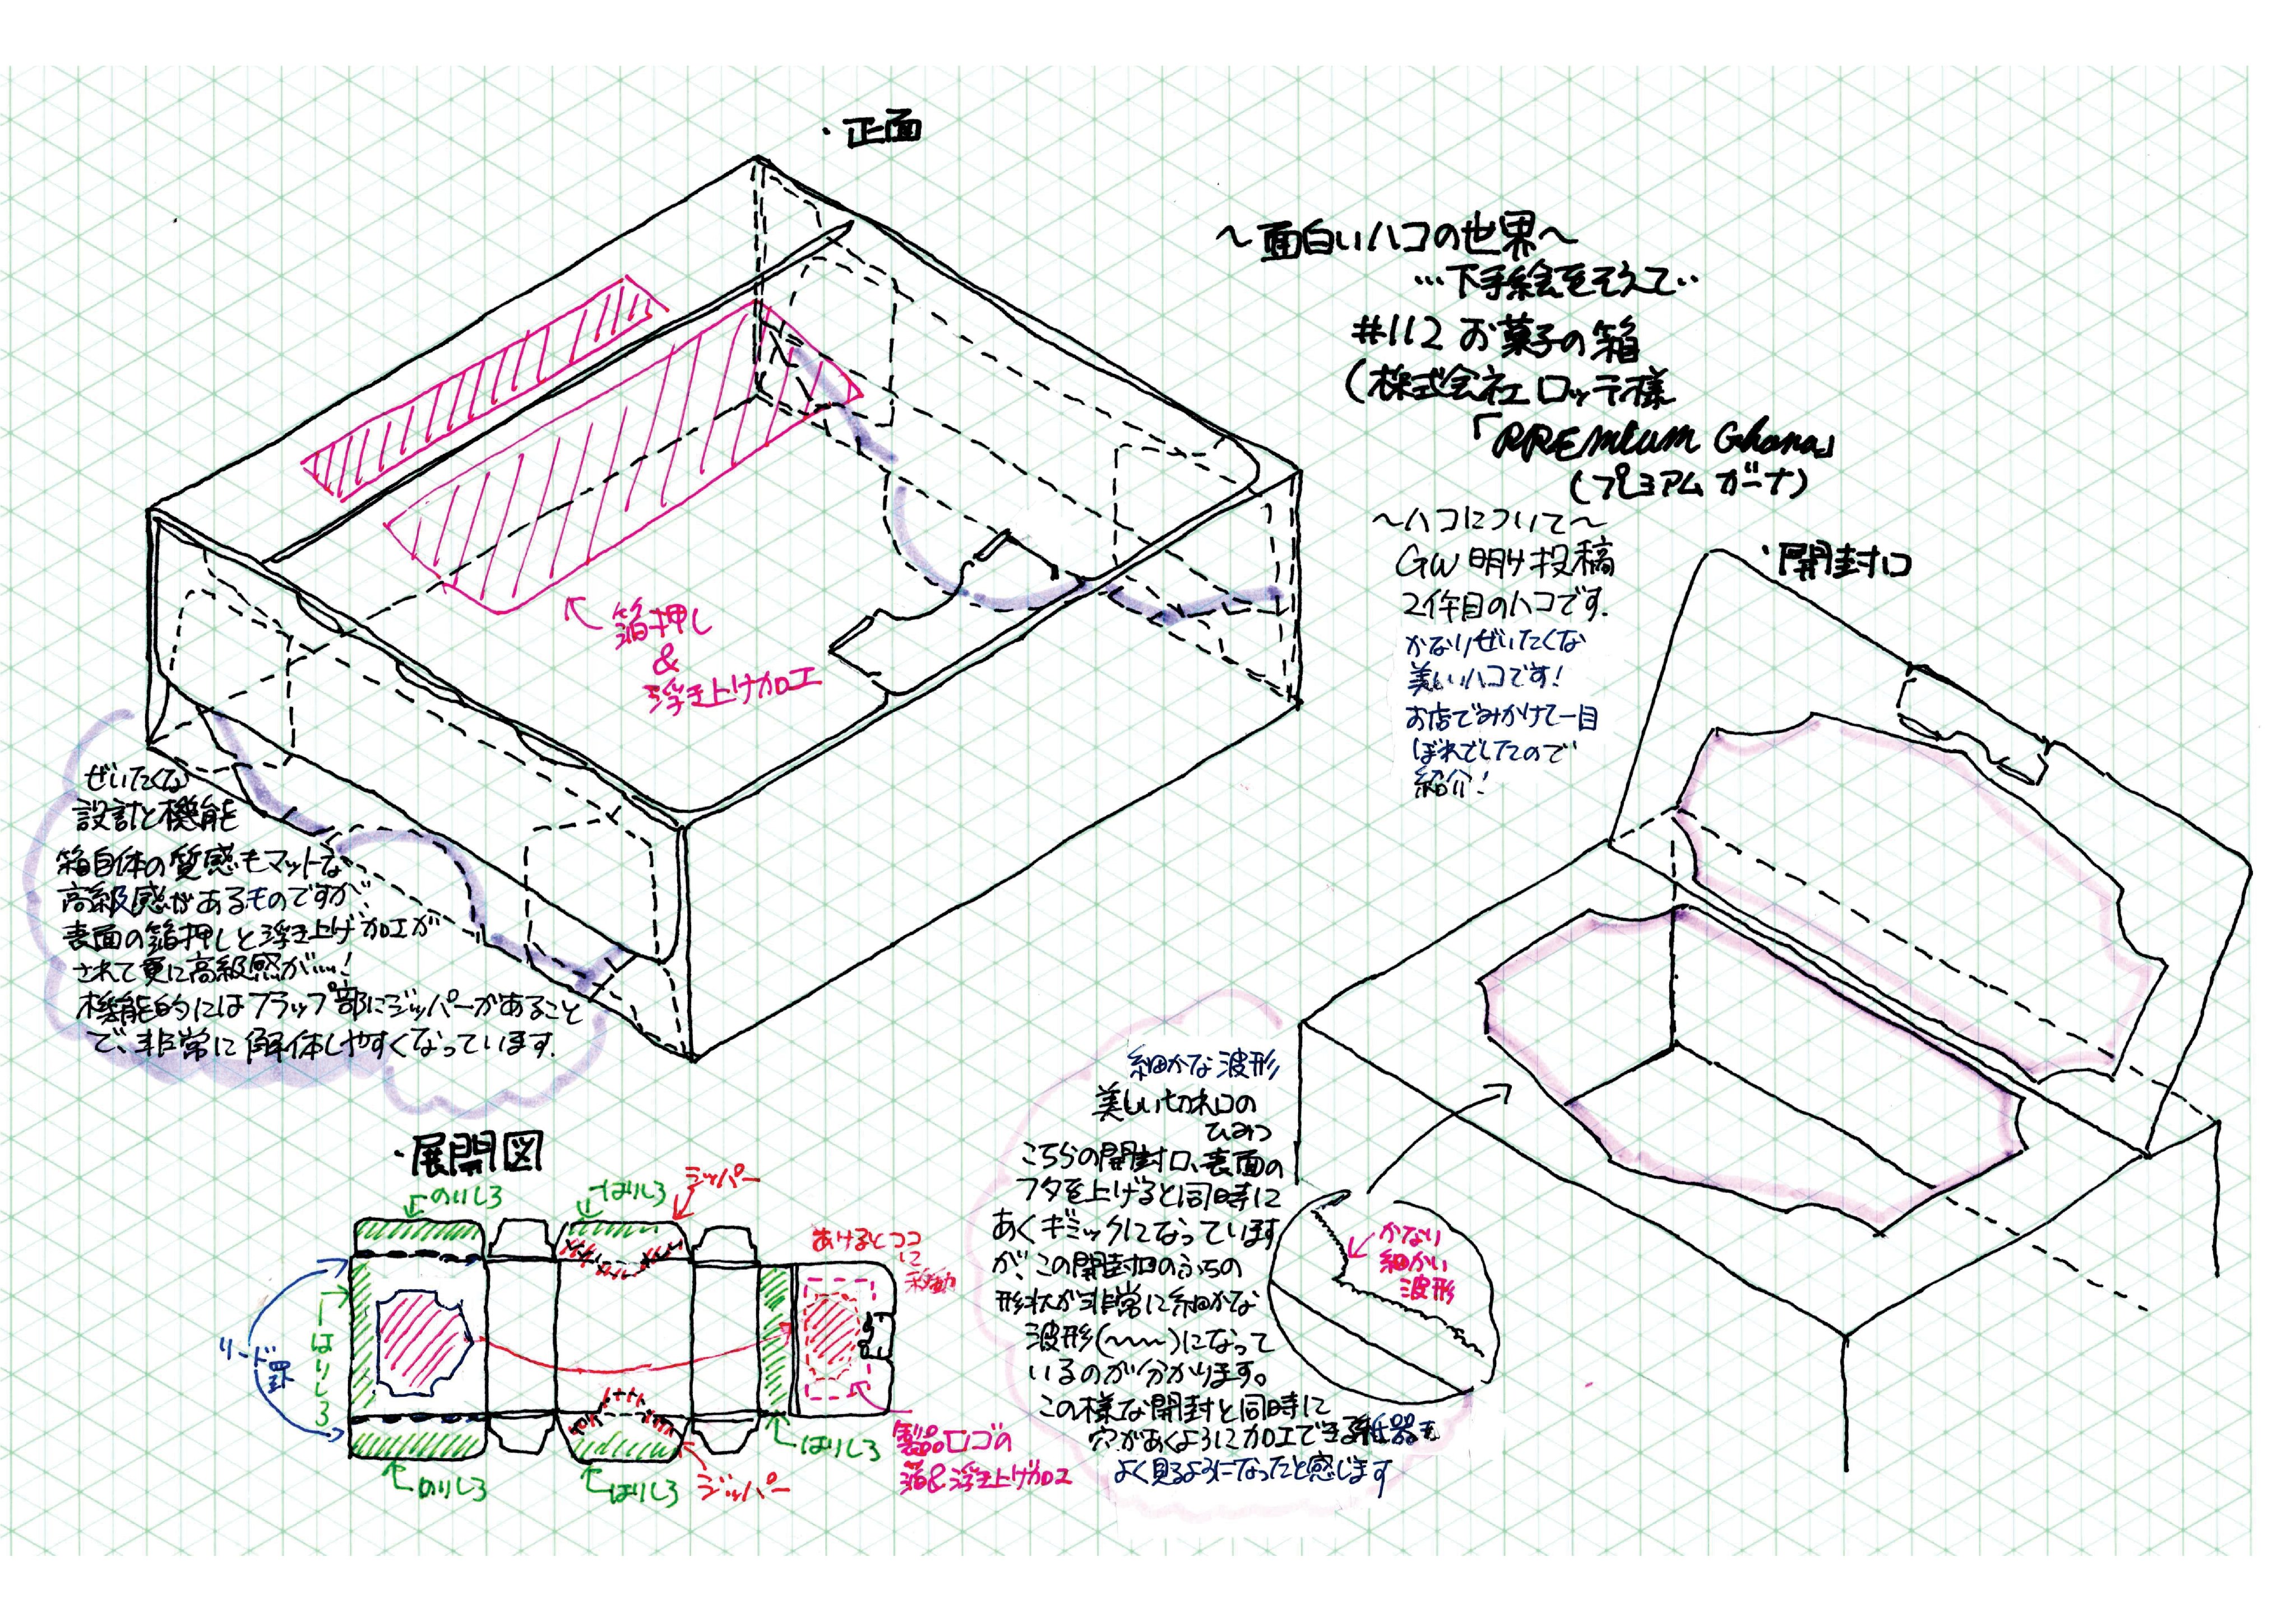 ・正面
～面白いハコの世界～
…下手絵をそえて…
#112 お菓子の箱
(株式会社 ロッテ様
「PREmium Ghana」
(プレミアム ガーナ)
～ハコについて～
GW 明け投稿
2件目のハコです.
かなりぜいたくな
美しいハコです!
お店でみかけて一目
ぼれでしたので
紹介!
・開封口
箔押し
&
浮き上げ加工
ぜいたくな
設計と機能
箱自体の質感もマットな
高級感があるものですが、
表面の箔押しと浮き上げ加工が
されて更に高級感が…!
機能的にはフラップ部にジッパーがあること
で、非常に解体しやすくなっています.
細かな波形
美しい切れ口の
ひみつ
こちらの開封口、表面の
フタを上げると同時に
あくギミックになっています
が、この開封口のふちの
形状が非常に細かな
波形(～～)になって
いるのが分かります。
この様な開封と同時に
穴があくように加工できる紙器も
よく見るようになったと感じます
かなり
細かい
波形
・展開図
のりしろ
はりしろ
ジッパー
あけるとココ
に
移動
リード罫
はりしろ
のりしろ
はりしろ
ジッパー
はりしろ
製品ロゴの
箔&浮き上げ加工